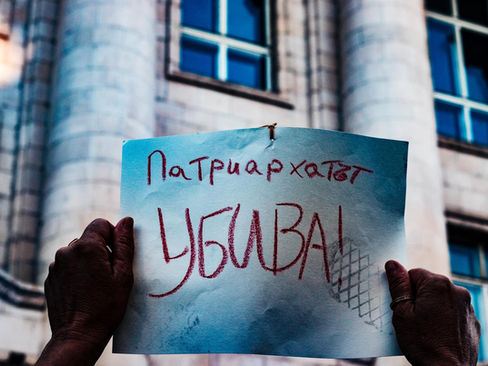 Патриархатът
УБИВА!